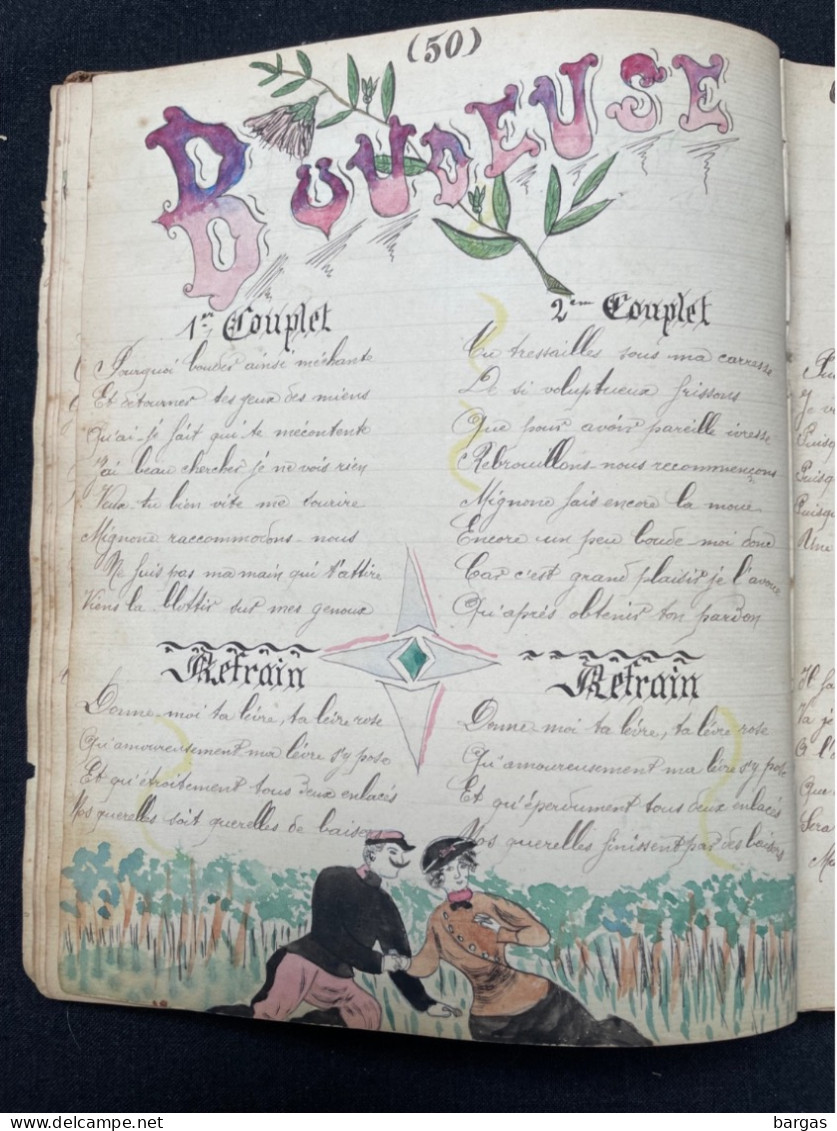 (50)
BOUDEUSE
1er Couplet
Pourquoi bouder ainsi méchante
Et détourner tes yeux des miens
Qu'ai-je fait qui te mécontente
J'ai beau chercher je ne vois rien
Veux-tu bien vite me sourire
Mignone raccommodons-nous
Ne fuis pas ma main qui t'attire
Viens la blottir sur mes genoux
Refrain
Donne-moi ta lèvre, ta lèvre rose
Qu'amoureusement ma lèvre s'y pose
Et qu'étroitement tous deux enlacés
Nos querelles soit querelles de baiser
2eme Couplet
Tu tressailles sous ma carresse
De si voluptueux frissons
Que pour avoir pareille ivresse
Rebrouillons-nous recommençons
Mignone fais encore la moue
Encore un peu boude-moi donc
Car c'est grand plaisir je l'avoue
Qu'après obtenir ton pardon
Refrain
Donne moi ta lèvre, ta lèvre rose
Qu'amoureusement ma lèvre s'y pose
Et qu'éperdument tous deux enlacés
Nos querelles finissent par des baisers
Puisq
Puisq
Puisqu
Une
Que
Sera
delcampe.net
bargas